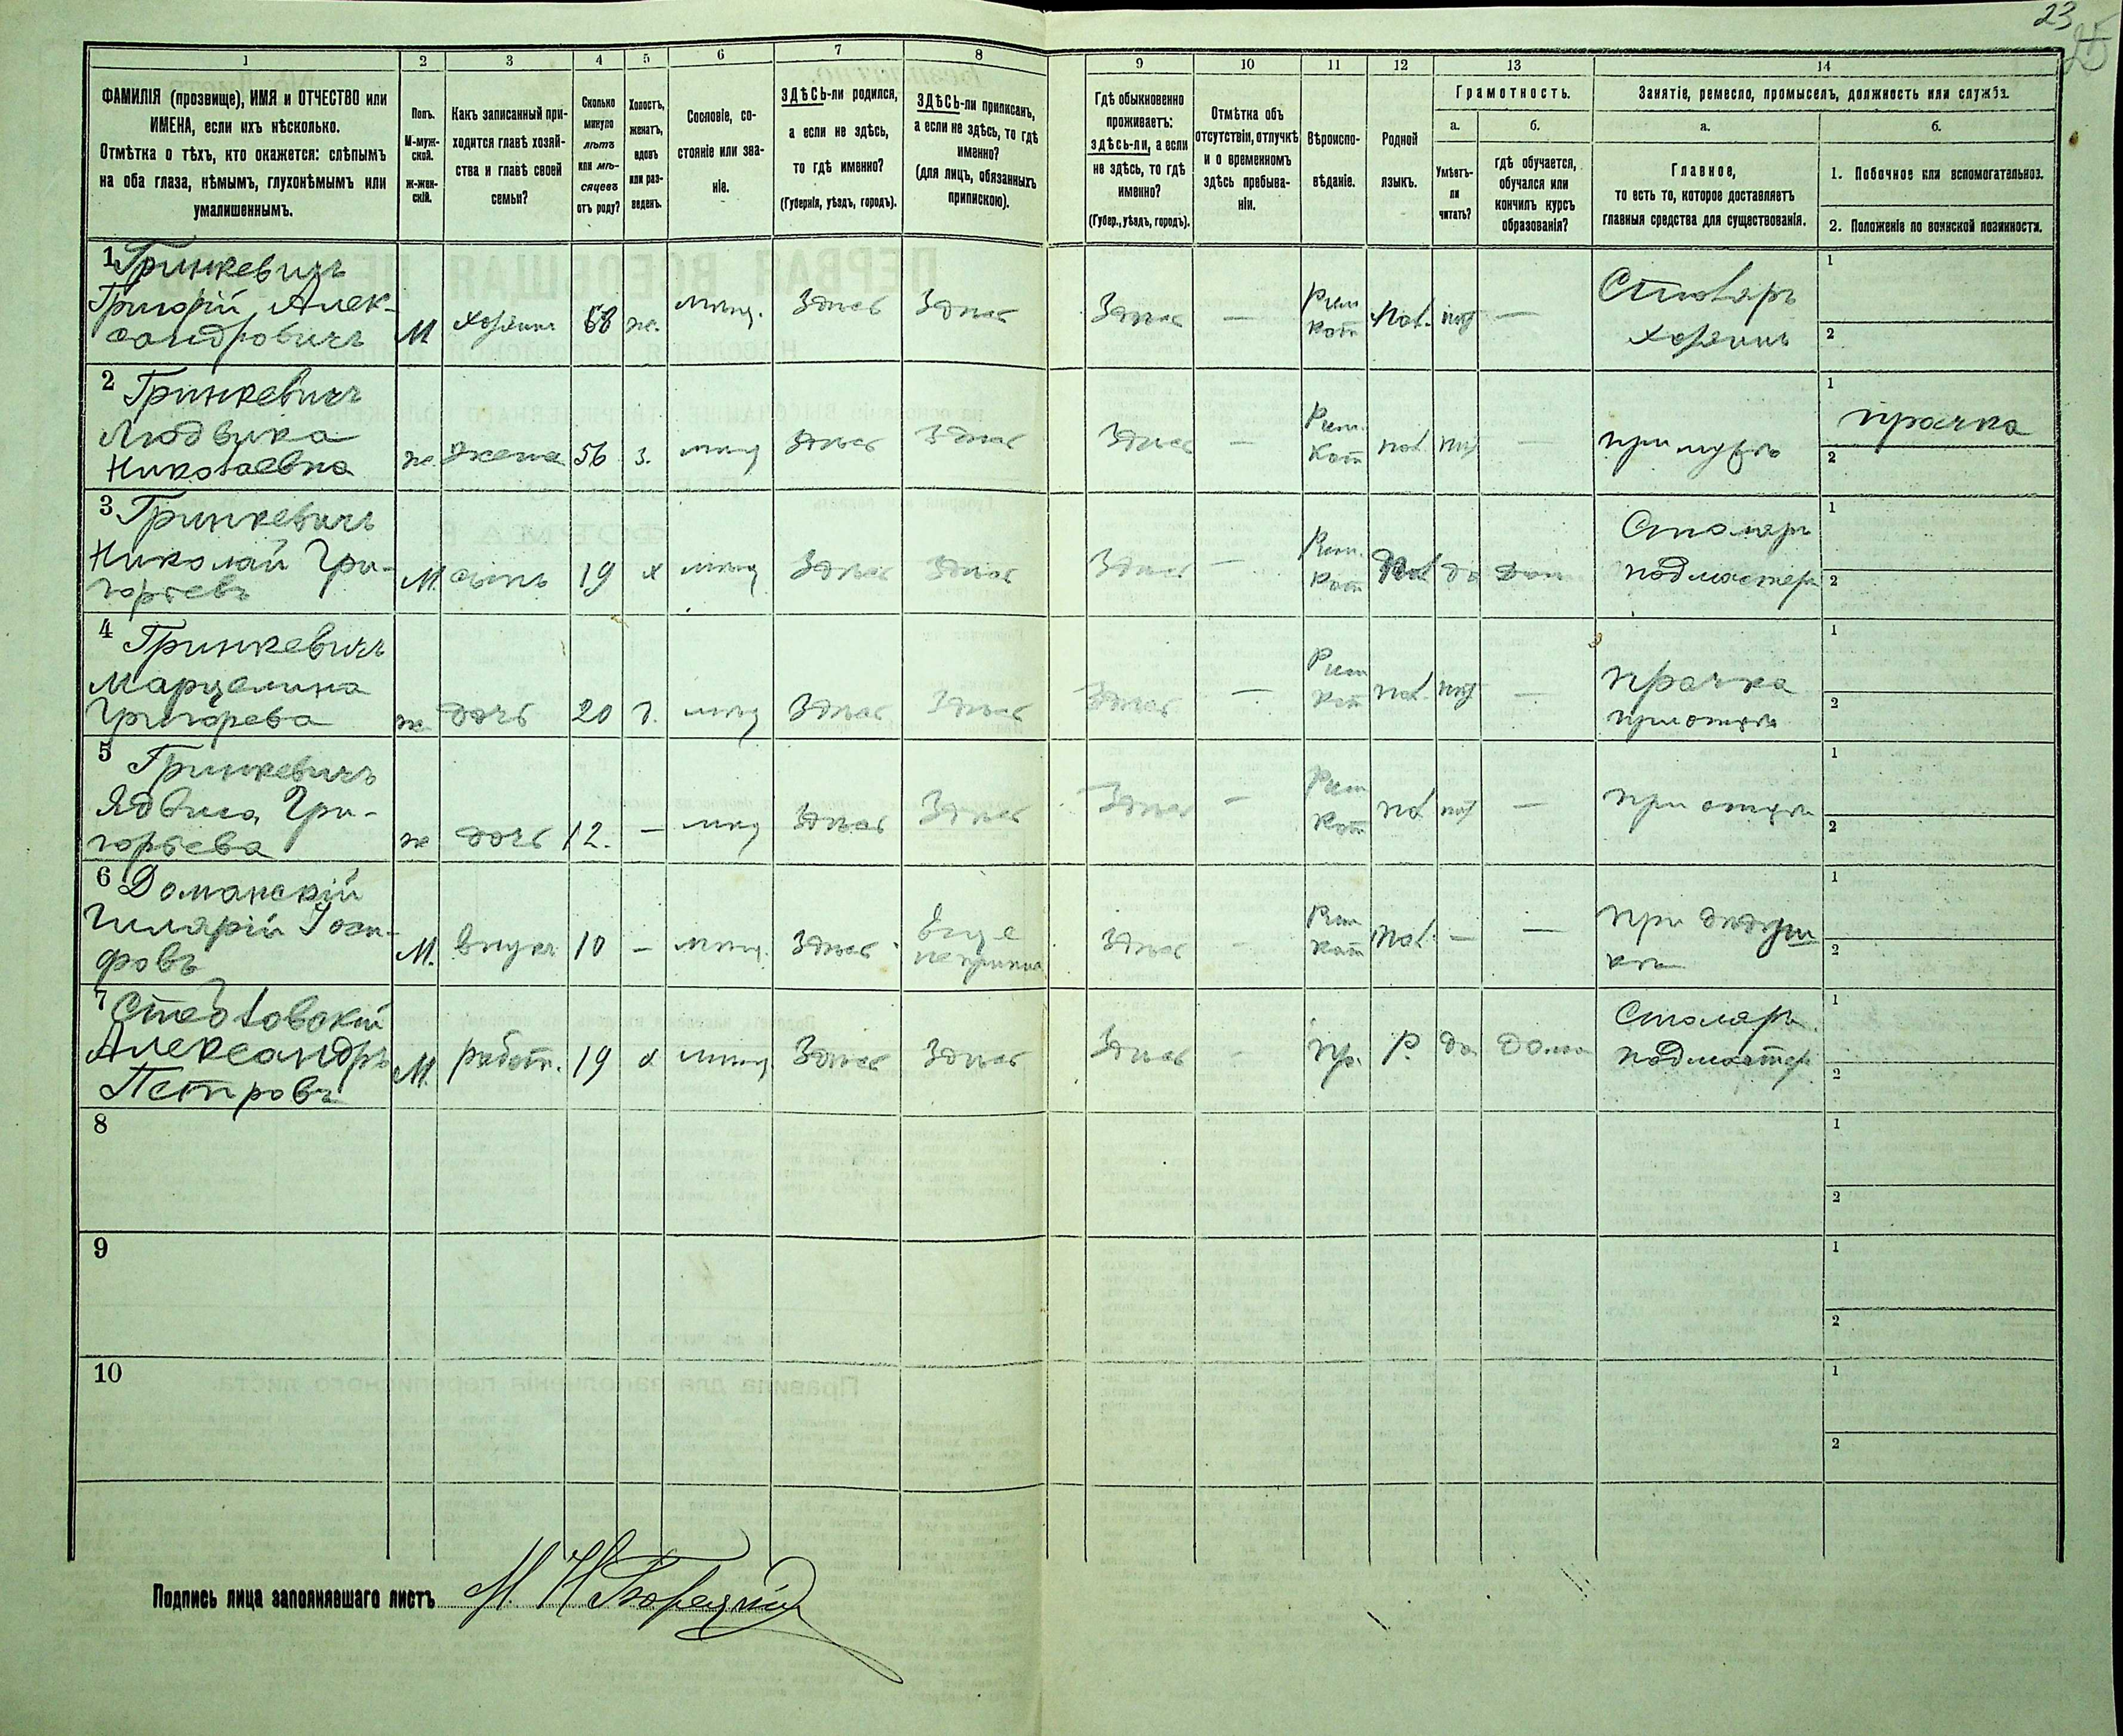 23
25
1 2 3 4 5 6 7 8 9 10 11 12 13 14
ФАМИЛІЯ (прозвище), ИМЯ и ОТЧЕСТВО или
ИМЕНА, если ихъ нѣсколько.
Отмѣтка о тѣхъ, кто окажется: слѣпымъ
на оба глаза, нѣмымъ, глухонѣмымъ или
умалишеннымъ.
Полъ.
М-муж-
ской.
ж-жен-
скій.
Какъ записанный при-
ходится главѣ хозяй-
ства и главѣ своей
семьи?
Сколько
минуло
лѣтъ
или мѣ-
сяцевъ
отъ роду?
Холостъ,
женатъ,
вдовъ
или раз-
веденъ.
Сословіе, со-
стояніе или зва-
ніе.
ЗДѢСЬ-ли родился,
а если не здѣсь,
то гдѣ именно?
(Губернія, уѣздъ, городъ).
ЗДѢСЬ-ли приписанъ,
а если не здѣсь, то гдѣ
именно?
(для лицъ, обязанныхъ
припискою).
Гдѣ обыкновенно
проживаетъ:
здѣсь-ли, а если
не здѣсь, то гдѣ
именно?
(Губер., уѣздъ, городъ).
Отмѣтка объ
отсутствіи, отлучкѣ
и о временномъ
здѣсь пребыва-
ніи.
Вѣроиспо-
вѣданіе.
Родной
языкъ.
Грамотность.
а.
Умѣетъ-
ли
читать?
б.
гдѣ обучается,
обучался или
кончилъ курсъ
образованія?
Занятіе, ремесло, промыселъ, должность или служба.
а.
Главное,
то есть то, которое доставляетъ
главныя средства для существованія.
б.
1. Побочное или вспомогательное.
2. Положеніе по воинской повинности.
1 Гринкевичъ
Григорій Алек-
сандровичъ
М хозяинъ 58 ж. мѣщ. Здѣсь Здѣсь Здѣсь — Рим кат пол. нѣт —
Столяръ
хозяинъ
1
2
2 Гринкевичъ
Людвика
Николаевна
ж. жена 56 з. мѣщ Здѣсь Здѣсь Здѣсь — Рим. Кат пол. нѣт —
при мужѣ
1 прачка
2
3 Гринкевичъ
Николай Гри-
горьевъ
М. сынъ 19 х мѣщ Здѣсь Здѣсь Здѣсь — Рим. Кат Пол да Дом
Столяръ
подмастер
1
2
4 Гринкевичъ
Марцелина
Григорьева
ж дочь 20 д. мѣщ Здѣсь Здѣсь Здѣсь — Рим Кат пол. нѣт —
прачка
при отцѣ
1
2
5 Гринкевичъ
Ядвига Гри-
горьева
ж дочь 12. — мѣщ Здѣсь Здѣсь Здѣсь — Рим Кат пол нѣт —
при отцѣ
1
2
6 Доманскій
Гилярій Іоси-
фовъ
М. внукъ 10 — мѣщ. Здѣсь еще не припис Здѣсь — Рим кат Пол. — —
при дѣдуш
кѣ
1
2
7
Александръ
Петровъ
М. работн. 19 х мѣщ. Здѣсь Здѣсь Здѣсь — пр. Р. да дома
Столяръ
подмастер
1
2
8
1
2
9
1
2
10
1
2
Подпись лица заполнявшаго листъ